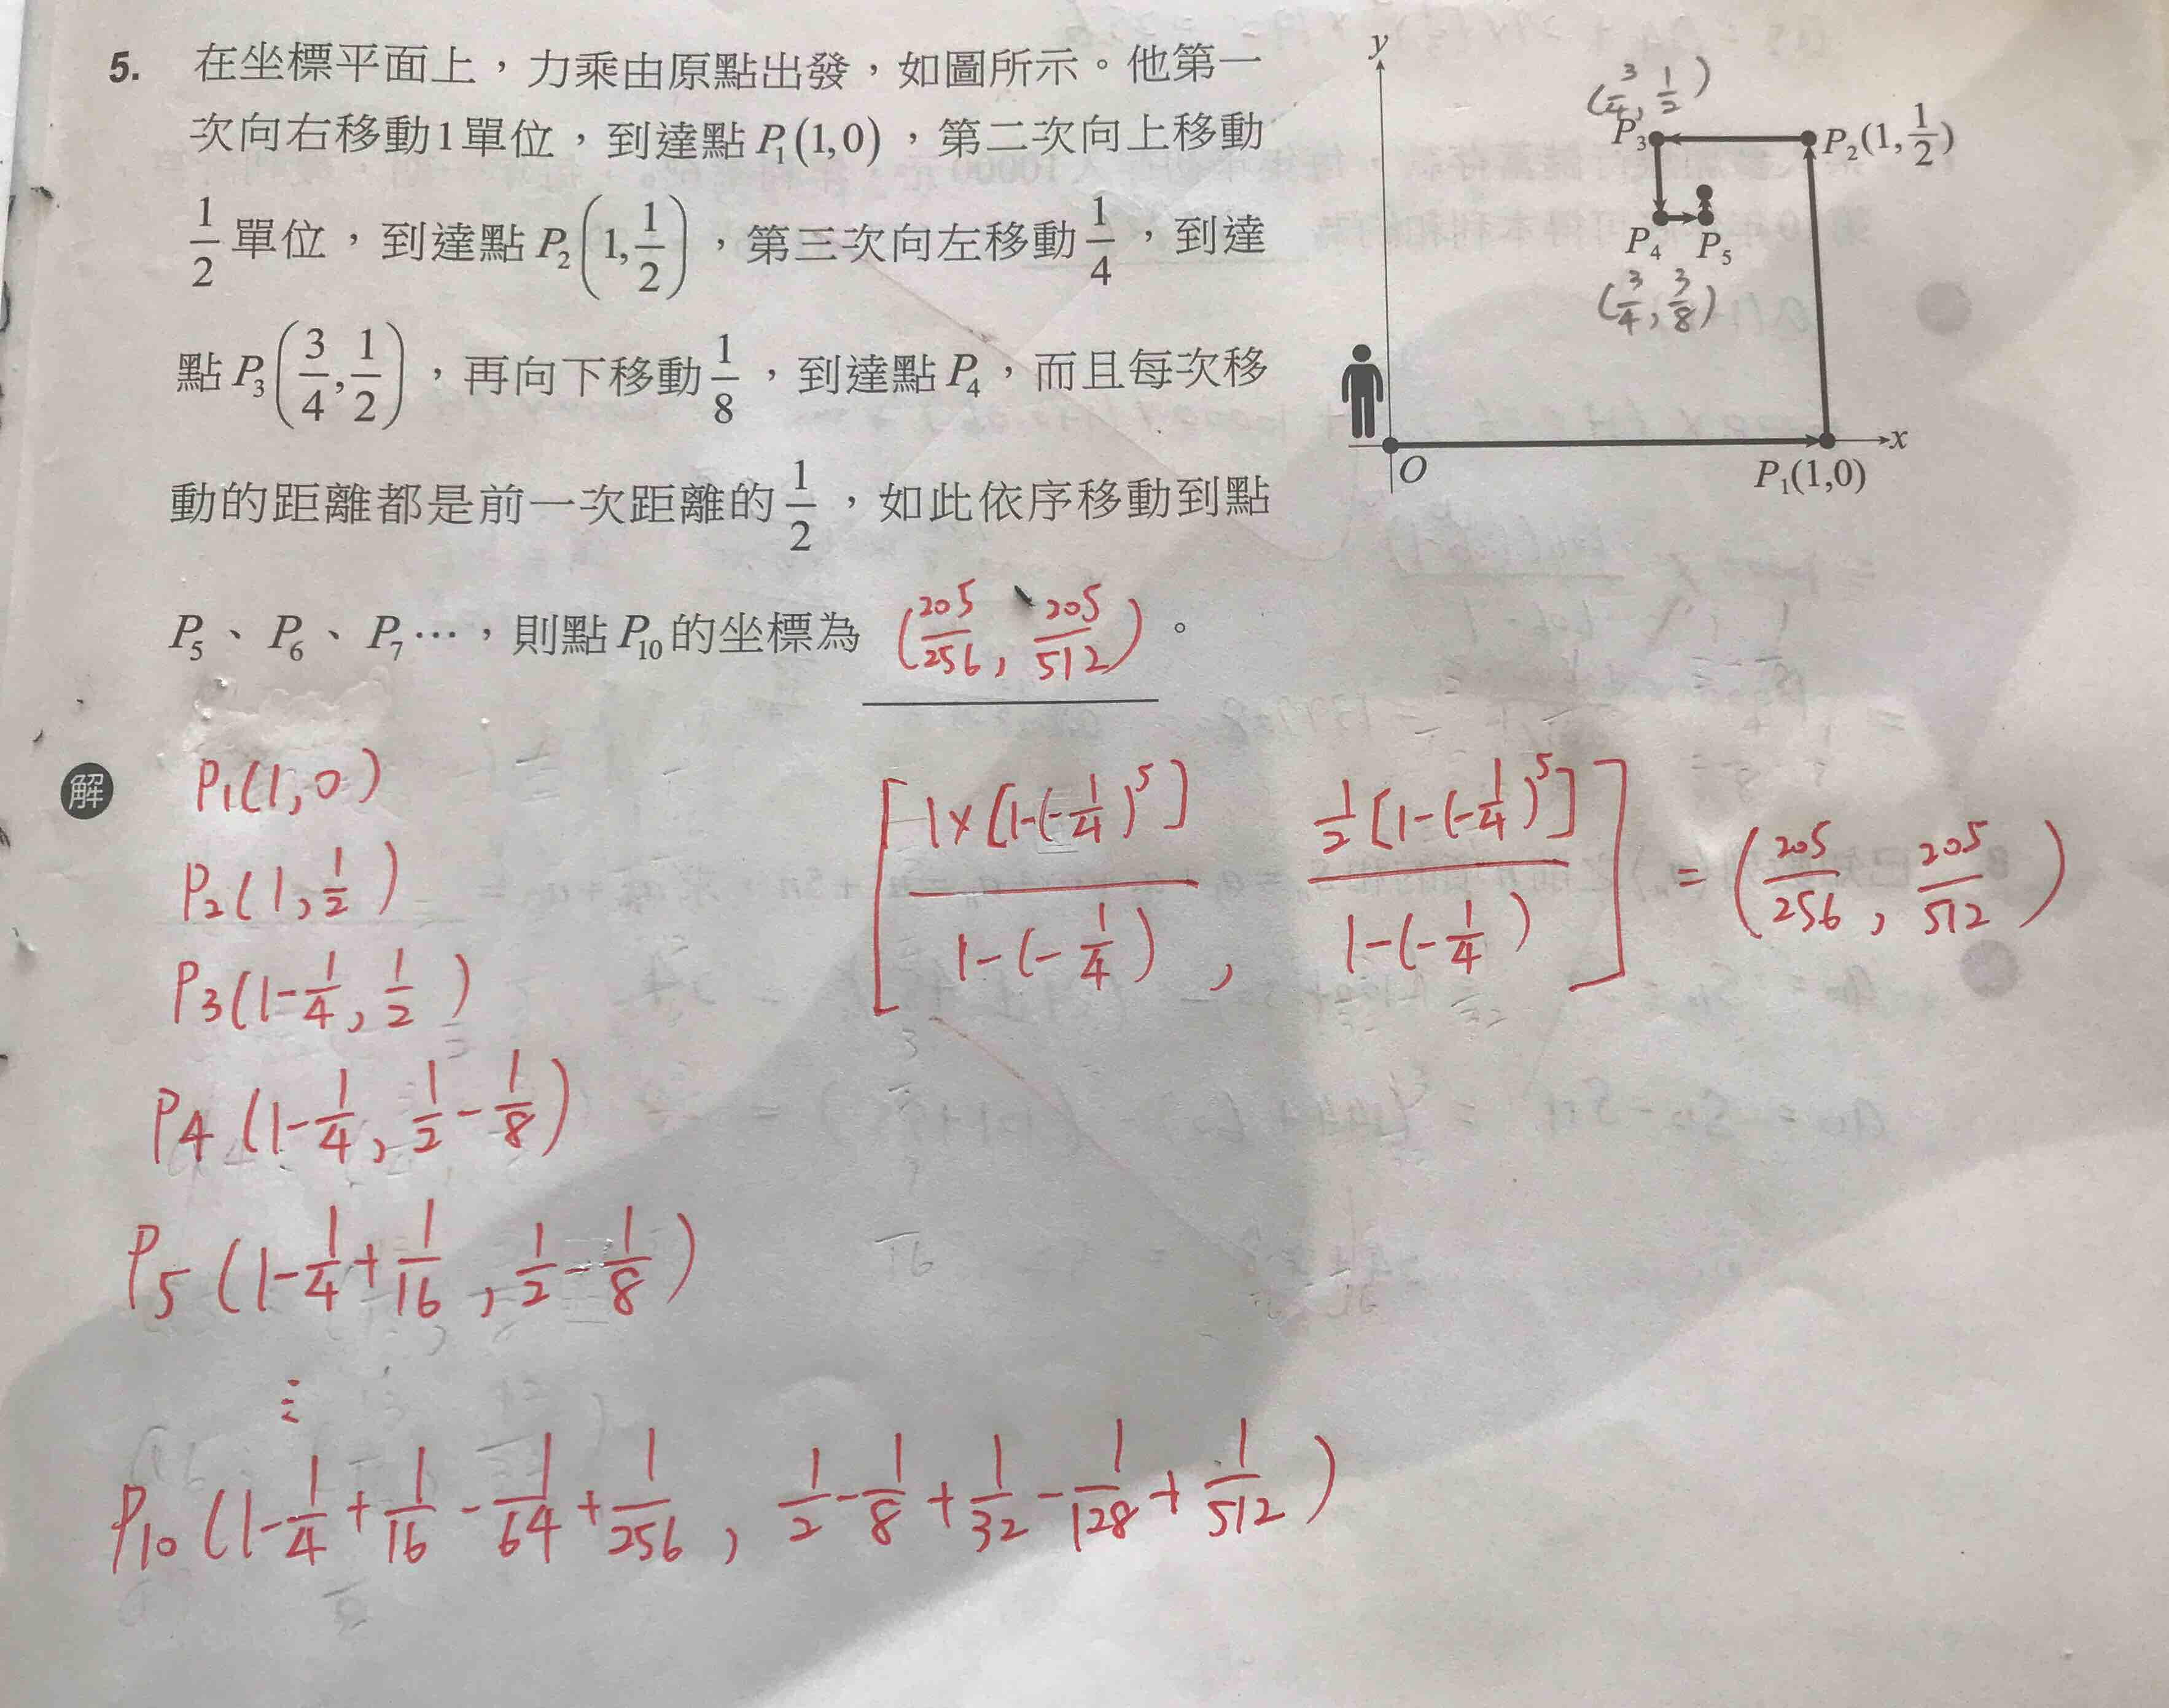 5. 在坐標平面上，力乘由原點出發，如圖所示。他第一
次向右移動1單位，到達點P₁(1,0)，第二次向上移動
1/2單位，到達點P₂(1,1/2)，第三次向左移動1/4，到達
點P₃(3/4,1/2)，再向下移動1/8，到達點P₄，而且每次移
動的距離都是前一次距離的1/2，如此依序移動到點
P₅、P₆、P₇⋯，則點P₁₀的坐標為 (205/256, 205/512)。
y
(3/4, 1/2)
P₃
P₂(1,1/2)
P₄ P₅
(3/4, 3/8)
x
O
P₁(1,0)
解
P₁(1,0)
P₂(1,1/2)
P₃(1-1/4, 1/2)
P₄(1-1/4, 1/2-1/8)
P₅(1-1/4+1/16, 1/2-1/8)
⋮
P₁₀(1-1/4+1/16-1/64+1/256, 1/2-1/8+1/32-1/128+1/512)
[1×[1-(-1/4)⁵]/1-(-1/4), 1/2[1-(-1/4)⁵]/1-(-1/4)] = (205/256, 205/512)